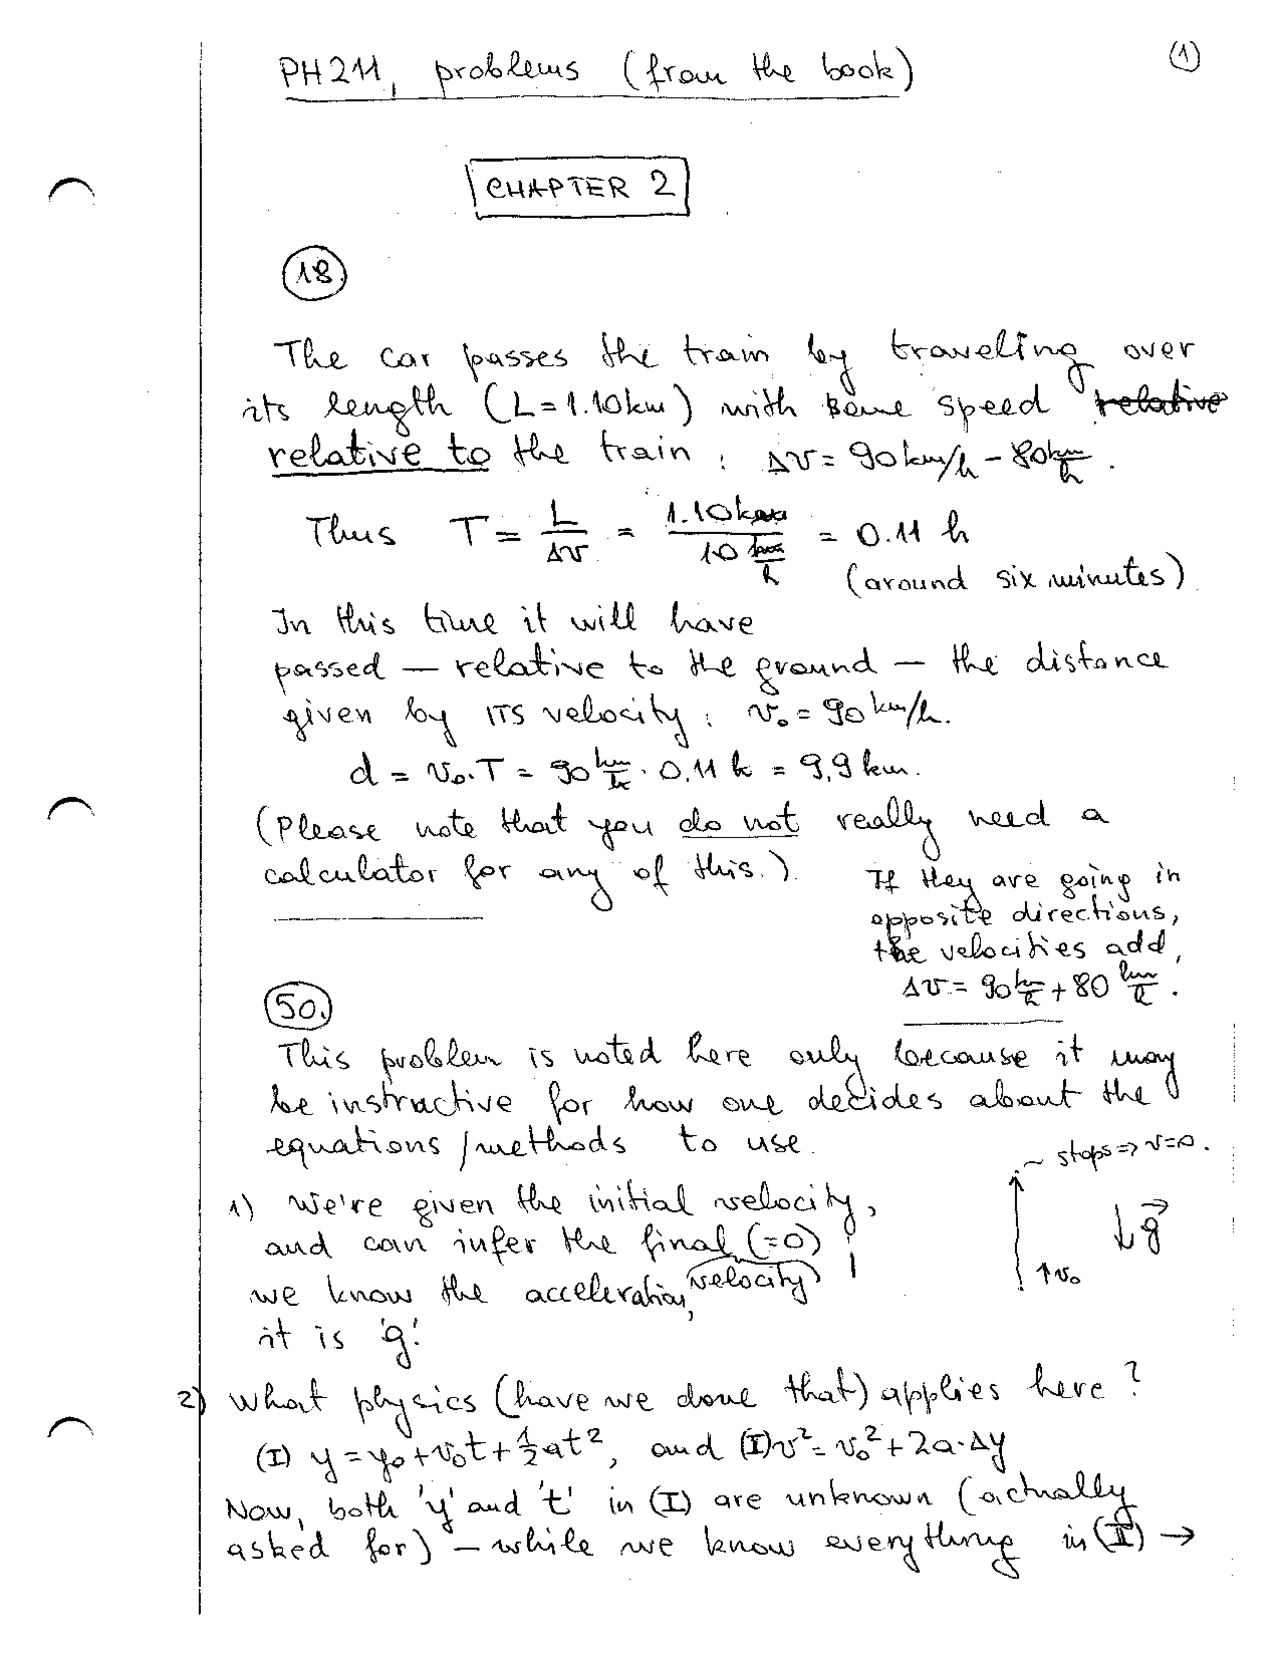 PH211, problems (from the book)
(1)
CHAPTER 2
18.
The car passes the train by traveling over
its length (L=1.10km) with some speed relative
relative to the train : Δv = 90km/h - 80 km/h .
Thus T = L/Δv = 1.10km / 10 km/h = 0.11 h
(around six minutes)
In this time it will have
passed — relative to the ground — the distance
given by ITS velocity : v₀ = 90 km/h.
d = v₀·T = 90 km/h · 0.11 h = 9,9 km.
(Please note that you do not really need a
calculator for any of this.)
If they are going in
opposite directions,
the velocities add,
Δv = 90 km/h + 80 km/h .
50.
This problem is noted here only because it may
be instructive for how one decides about the
equations/methods to use.
~ stops ⇒ v=0.
1) We're given the initial velocity,
and can infer the final (=0) velocity!
↓ g⃗
↑ v₀
we know the acceleration,
it is 'g'.
2) What physics (have we done that) applies here?
(I) y = y₀ + v₀t + ½at², and (II) v² = v₀² + 2a·Δy
Now, both 'y' and 't' in (I) are unknown (actually
asked for) – while we know everything in (II) →